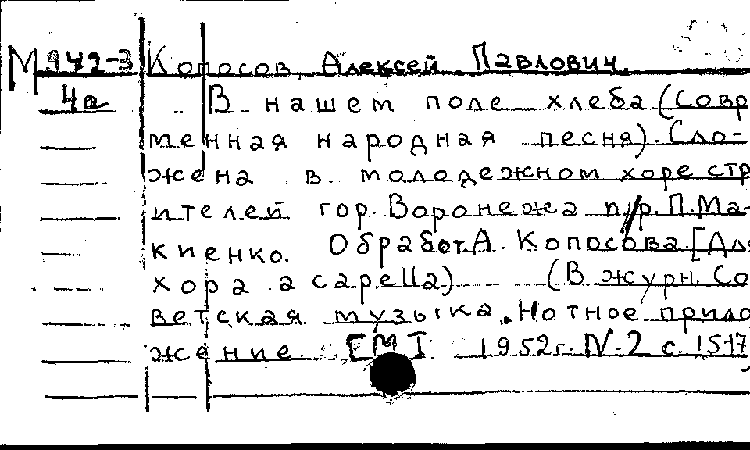 М 942-3 Копосов, Алексей Павлович.
4а В нашем поле хлеба (Совр
менная народная песня). Сло-
жена в молодежном хоре стр
ителей гор. Воронежа п/р. П. Ма-
киенко. Обработ. А. Копосова [Для
хора a capella) (В журн. Со
ветская музыка. Нотное прило
жение 1952г. IV-2 с. 15-17